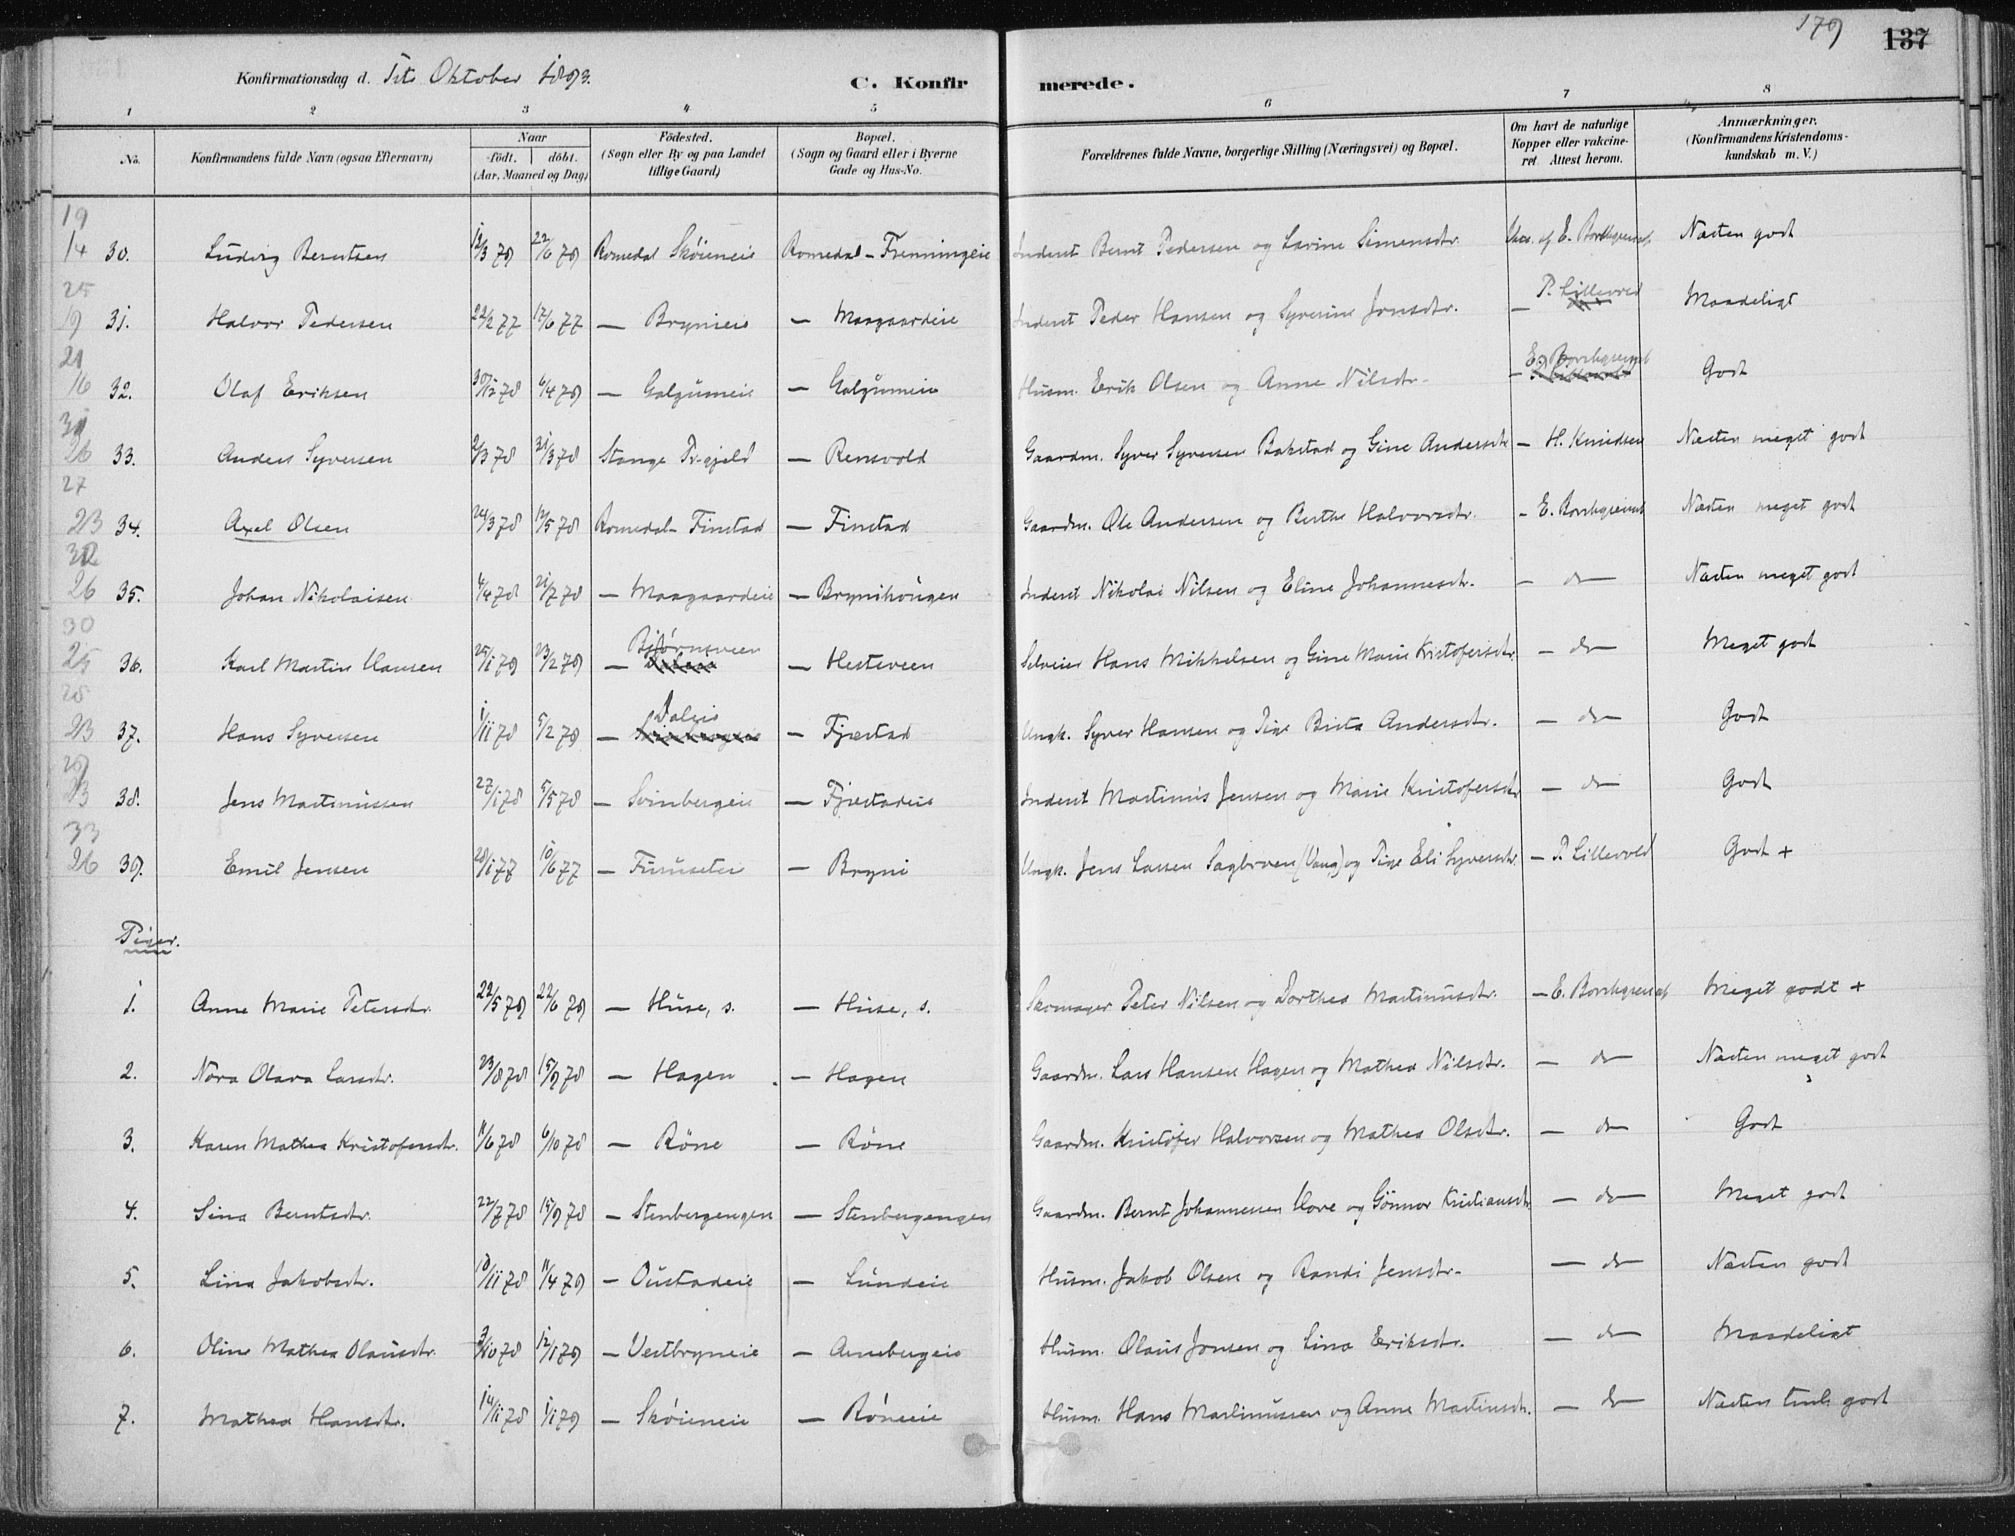 179
137
Konfirmationsdag d. 1ste Oktober 1893.
C. Konfirmerede.
1 2 3 4 5 6 7 8
No.
Konfirmandens fulde Navn (ogsaa Efternavn)
Naar
født. døbt.
(Aar, Maaned og Dag)
Fødested.
(Sogn eller By og paa Landet
tillige Gaard)
Bopæl.
(Sogn og Gaard eller i Byerne
Gade og Hus-No.
Forældrenes fulde Navne, borgerlige Stilling (Næringsvei) og Bopæl.
Om havt de naturlige
Kopper eller vakcine-
ret. Attest herom.
Anmærkninger.
(Konfirmandens Kristendoms-
kundskab m. V.)
19
14 30. Ludvig Berntsen 12/3 79 22/6 79 Romedal Skøieneie Romedal - Frenningeie Inderst Bernt Pedersen og Lavine Simensdtr. Vacc. af E. Borchgrevink Næsten godt
25
19 31. Halvor Pedersen 22/2 77 17/6 77 — Brynieie — Maagaardeie Inderst Peder Hansen og Syverine Jonsdtr. — P. Lillevold Maadeligt
21
16 32. Olaf Eriksen 30/12 78 6/4 79 — Galgumeie — Galgumeie Husm. Erik Olsen og Anne Nilsdtr. — E. Borchgrevink Godt
26 33. Anders Syversen 2/3 78 31/3 78 Stange Pr.gjeld — Rensvold Gaardm. Syver Syversen Bakstad og Gine Andersdtr. — H. Knudsen Næsten meget godt
27
23 34. Axel Olsen 24/3 78 12/5 78 Romedal - Finstad — Finstad Gaardm. Ole Andersen og Berthe Halvorsdtr. — E. Borchgrevink Næsten meget godt
32
26 35. Johan Nikolaisen 4/4 78 21/7 78 — Maagaardeie — Brynihougen Inderst Nikolai Nilsen og Eline Johannesdtr. — do — Næsten meget godt
30
25 36. Karl Martin Hansen 25/1 79 23/2 79 — Bjørnsveen — Hesteveen Selveier Hans Mikkelsen og Gine Marie Kristofersdtr. — do — Meget godt
25
23 37. Hans Syversen 1/11 78 5/2 79 — Daleie — Fjæstad Ungk. Syver Hansen og Pige Berta Andersdtr. — do — Godt
23 38. Jens Martinussen 27/1 78 5/5 78 — Svinbergeie — Fjæstadeie Inderst Martinus Jensen og Marie Kristofersdtr. — do — Godt
33
26 39. Emil Jensen 28/1 77 10/6 77 — Furuseter — Bryni Ungk. Jens Larsen Sagbroen (Vang) og Pige Eli Syversdtr. — P. Lillevold Godt +
Piger.
1. Anne Marie Petersdtr. 22/5 79 22/6 79 — Huse, s. — Huse, s. Skomager Peter Nilsen og Dorthea Martinusdtr. — E. Borchgrevink Meget godt +
2. Nora Olava Larsdtr. 23/8 78 15/9 78 — Hagen — Hagen Gaardm. Lars Hansen Hagen og Mathea Nilsdtr. — do — Næsten meget godt
3. Karen Mathea Kristofersdtr. 11/6 78 6/10 78 — Røne — Røne Gaardm. Kristofer Halvorsen og Mathea Olsdtr. — do — Godt
4. Sina Berntsdtr. 22/7 78 15/9 78 — Stenbergengen — Stenbergengen Gaardm. Bernt Johannessen Hove og Gønnor Kristiansdtr. — do — Meget godt
5. Lina Jakobsdtr. 18/11 78 11/4 79 — Oustadeie — Lundeie Husm. Jakob Olsen og Randi Jensdtr. — do — Næsten godt
6. Oline Mathea Olausdtr. 3/10 78 12/1 79 — Vestbryneie — Arnebergeie Husm. Olaus Jonsen og Lina Eriksdtr. — do — Maadeligt
7. Mathea Hansdtr. 14/11 78 1/1 79 — Skøieneie — Røneeie Husm. Hans Martinussen og Anne Martinsdtr. — do — Næsten temt. godt